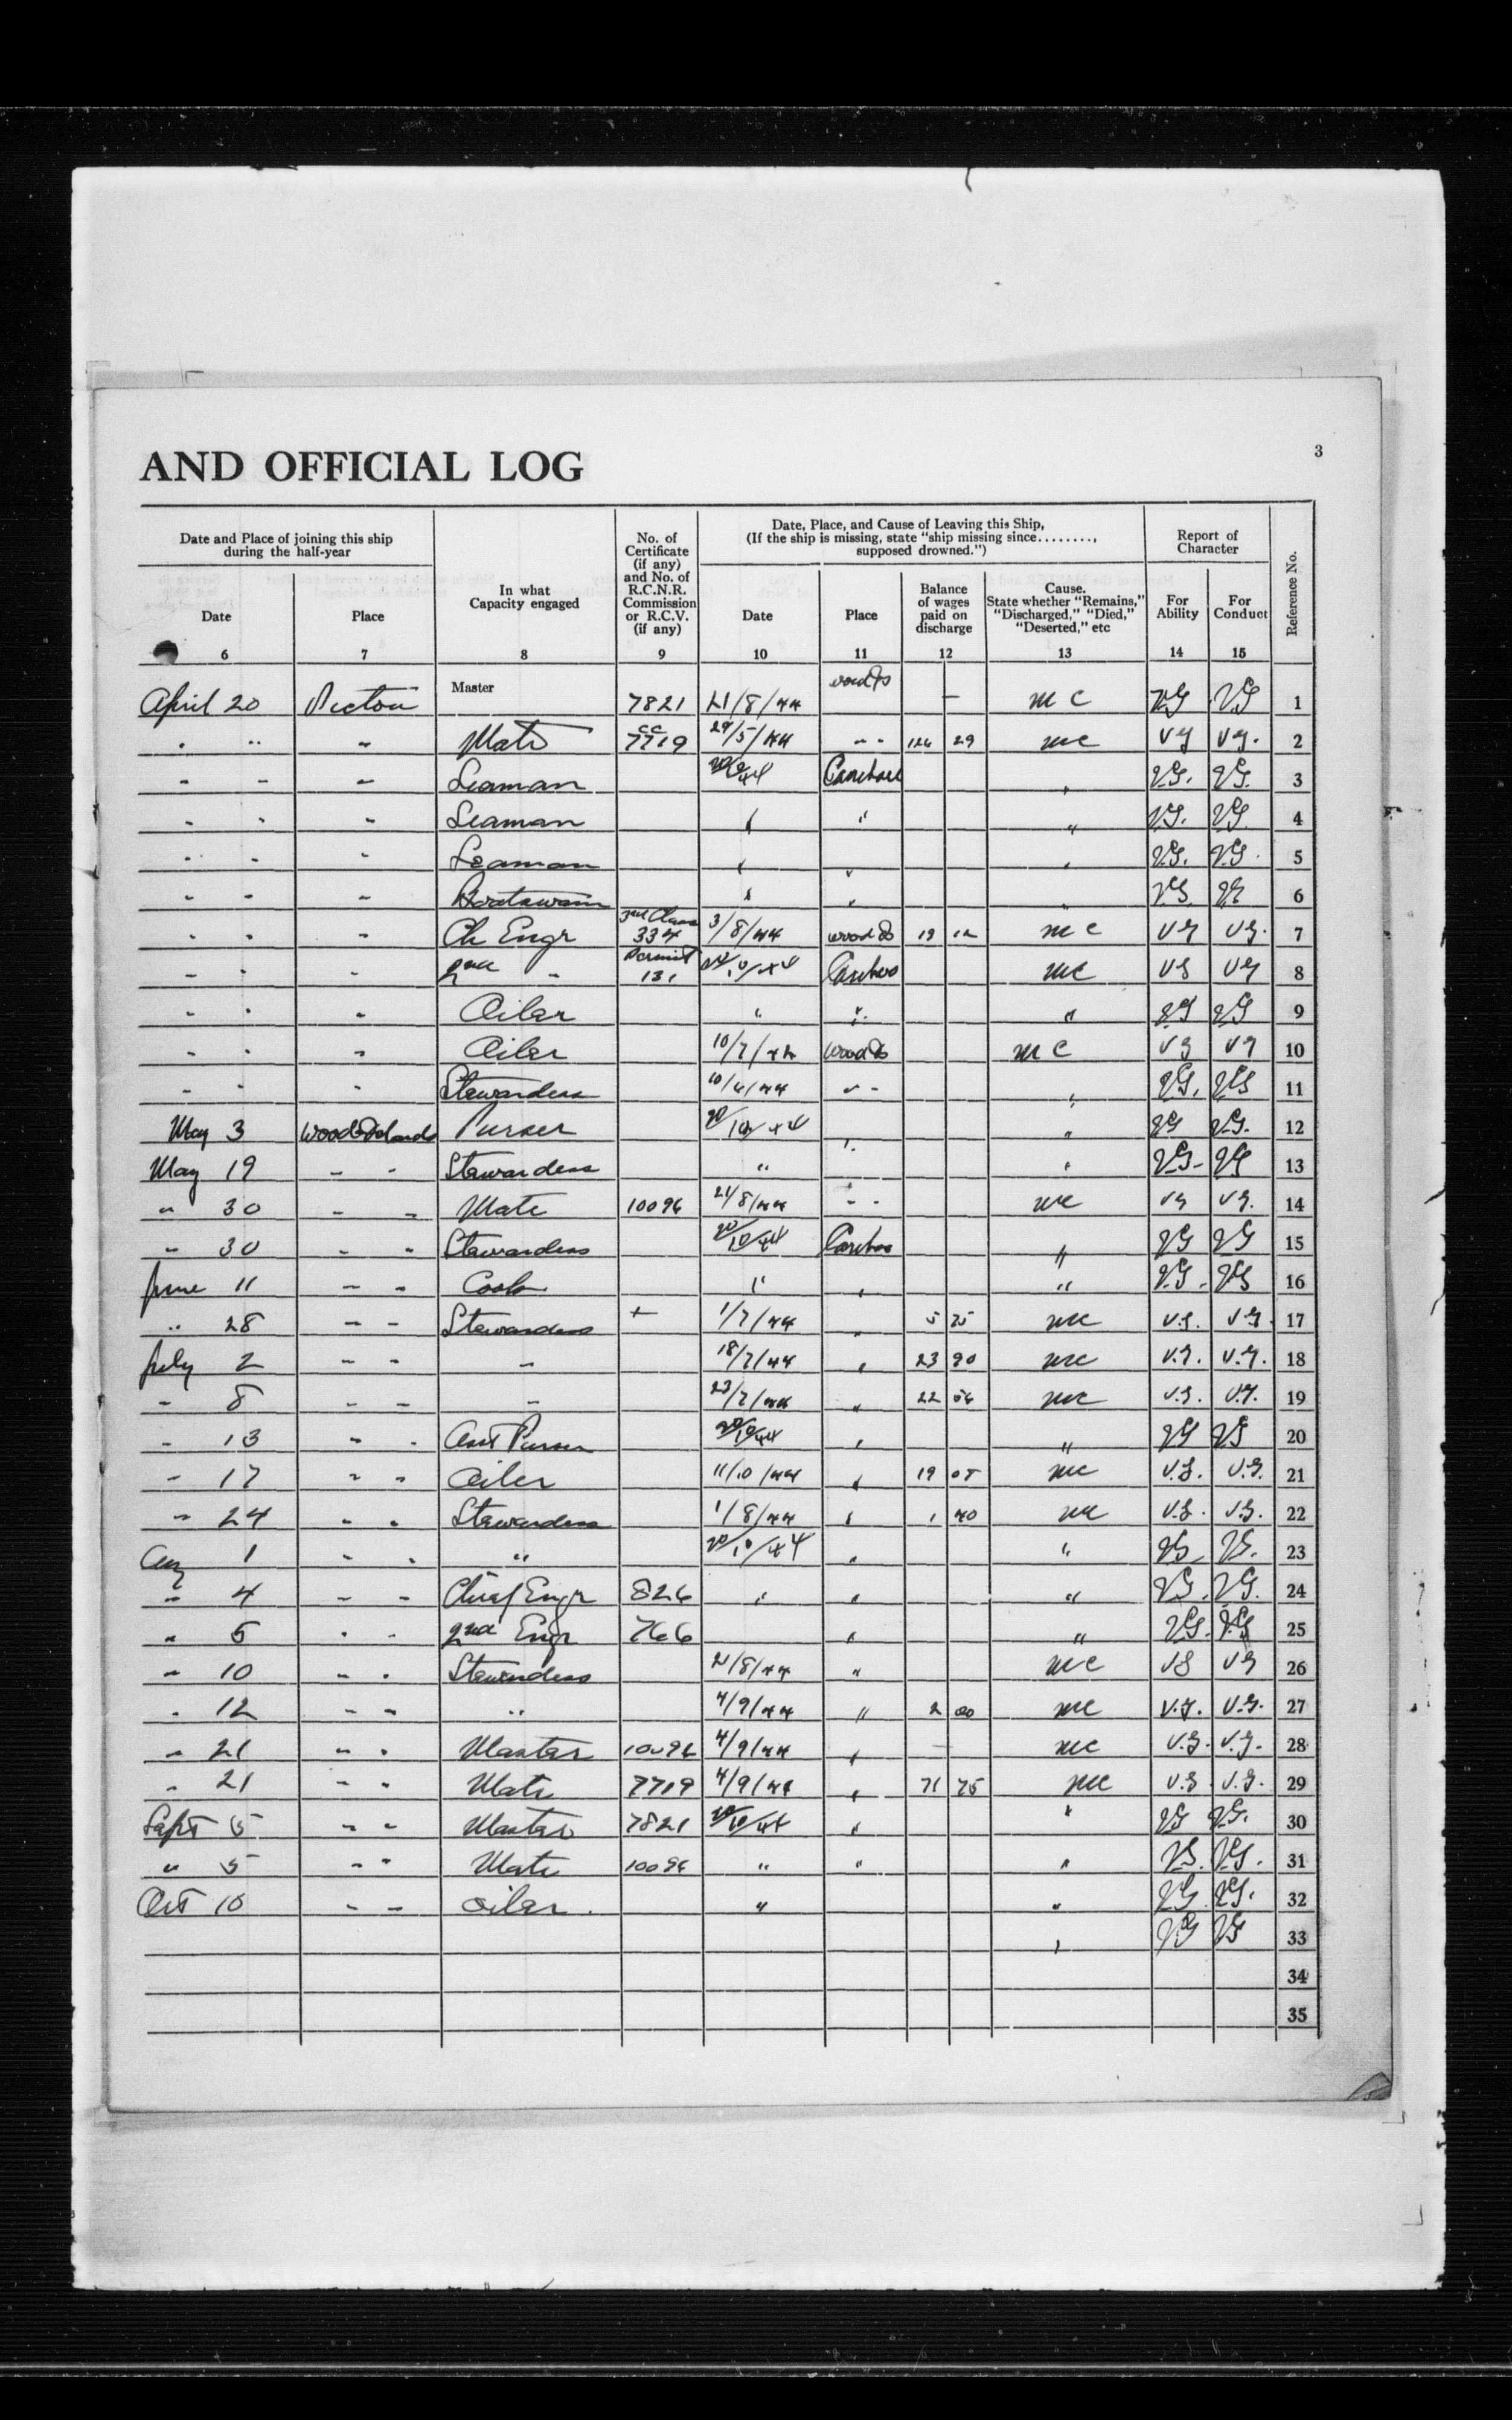 3
AND OFFICIAL LOG
Date and Place of joining this ship during the half-year
In what Capacity engaged
No. of Certificate (if any) and No. of R.C.N.R. Commission or R.C.V. (if any)
Date, Place, and Cause of Leaving this Ship, (If the ship is missing, state "ship missing since........, supposed drowned.")
Report of Character
Reference No.
Date Place Date Place Balance of wages paid on discharge Cause. State whether "Remains," "Discharged," "Died," "Deserted," etc For Ability For Conduct
6 7 8 9 10 11 12 13 14 15
April 20 Picton Master 7821 21/8/44 — MC VG VG 1
" " " Mate CC 7719 29/5/44 " " 126 29 MC VG VG. 2
" " " Seaman " VG. VG. 3
" " " Seaman " " VG. VG 4
" " " Seaman " " " VG. VG. 5
" " " Boatswain " " " VG. VG 6
" " " Ch Engr 3rd Class 334 3/8/44 19 12 MC VG VG. 7
" " " 2nd " Permit 131 MC VG VG 8
" " " Oiler " " " VG VG 9
" " " Oiler 10/7/44 MC VG VG 10
" " " Stewardess " " " VG. VG 11
May 3 Purser 20/10/44 " " VG VG. 12
May 19 " " Stewardess " " VG- VG 13
" 30 " " Mate 10096 21/8/44 " " MC VG VG. 14
" 30 " " Stewardess 20/10/44 " VG VG 15
June 11 " " Cook " " " VG. VG 16
" 28 " " Stewardess + 1/7/44 " 5 75 MC V.G. V.G. 17
July 2 " " " 18/7/44 " 23 90 MC V.G. V.G. 18
" 8 " " " 23/7/44 " 22 MC V.G. V.G. 19
" 13 " " Asst Purser 20/10/44 " " VG VG 20
" 17 " " Oiler 11/10/44 " 19 05 MC V.G. V.G. 21
" 24 " " Stewardess 1/8/44 " 1 40 MC V.G. V.G. 22
Aug 1 " " " 20/10/44 " " VG VG. 23
" 4 " " Chief Engr 826 " " " VG. VG. 24
" 5 " " 2nd Engr 766 " " VG. VG 25
" 10 " " Stewardess 21/8/44 " MC VG VG 26
" 12 " " " 4/9/44 " 2 00 MC V.G. V.G. 27
" 21 " " Master 10096 4/9/44 " — MC V.G. V.G. 28
" 21 " " Mate 7719 4/9/44 " 71 75 MC V.G. V.G. 29
Sept 5 " " Master 7821 20/10/44 " " VG VG. 30
" 5 " " Mate 10096 " " " VG. VG. 31
Oct 10 " " Oiler. " " VG. VG. 32
" VG VG 33
34
35